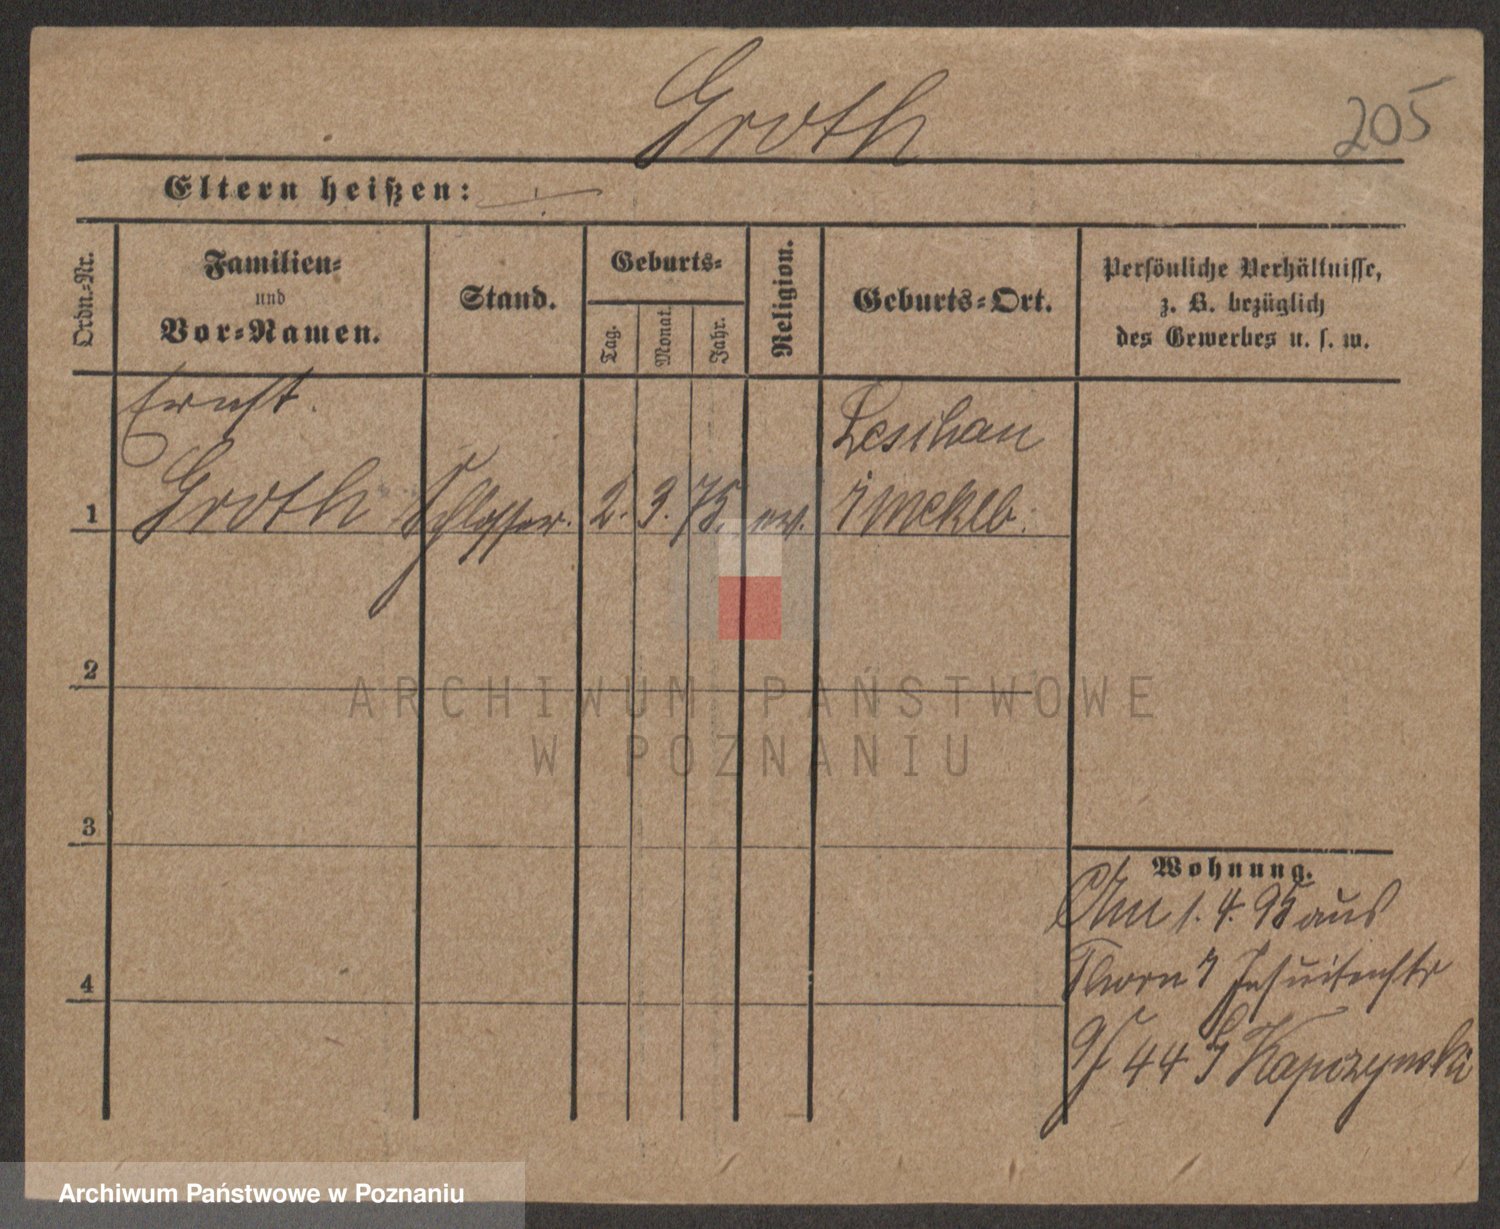 Groth
205
Eltern heißen:
Ordn.-Nr.
Familien-
und
Vor-Namen.
Stand.
Geburts-
Tag.
Monat.
Jahr.
Religion.
Geburts-Ort.
Persönliche Verhältnisse,
z. B. bezüglich
des Gewerbes u. s. w.
Ernst.
1 Groth Schlosser. 2. 3. 75. ev.
Meklb.
2
3
4
Wohnung.
1. 4. 95 aus
Thorn Jesuitenstr
44 Kapczynski
ARCHIWUM PAŃSTWOWE
W POZNANIU
Archiwum Państwowe w Poznaniu